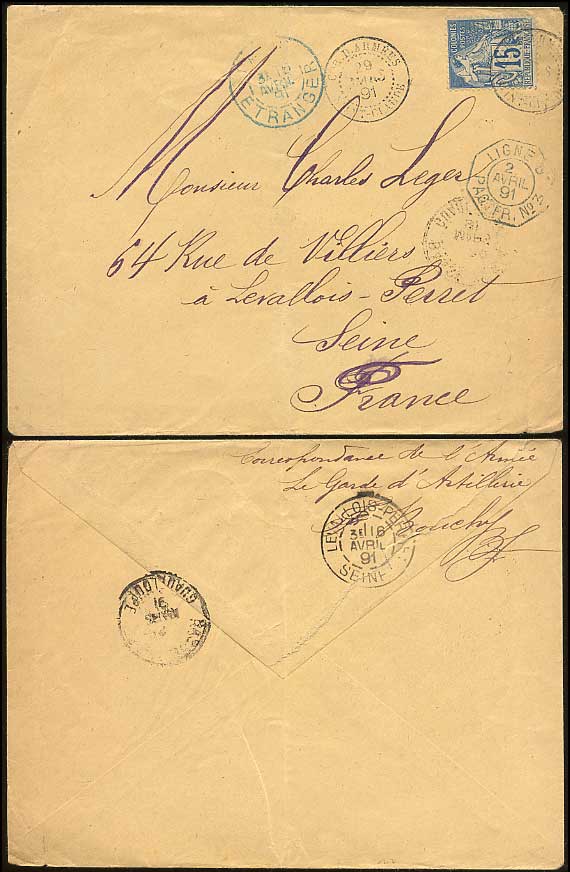 ETRANGER
AVRIL
91
COR. D. ARMÉES
29
MARS
91
COLONIES
POSTES
15
LIGNE
2
AVRIL
91
PAQ. FR. No
Monsieur Charles Leger
64 Rue de Villiers
à Levallois-Perret
Seine
France
Correspondance de l'Armée
Le Garde d'Artillerie
LEVALLOIS-PERRET
16
AVRIL
91
SEINE
GUADELOUPE
MARS
91